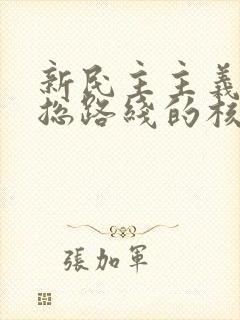 新民主主義
總路綫的核
張加軍